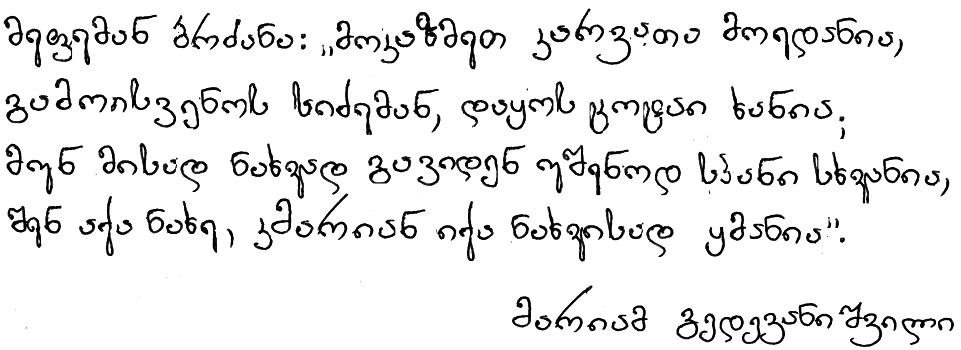 მეფემან ბრძანა: „მოკაზმეთ კარვათა მოედანია,
გამოისვენოს სიძემან, დაყოს ცოტაი ხანია;
მუნ მისად ნახვად გავიდენ უშენოდ სპანი სხვანია,
შენ აქა ნახე, კმარიან იქა ნახვისად ყმანია“.
მარიამ გედევანიშვილი